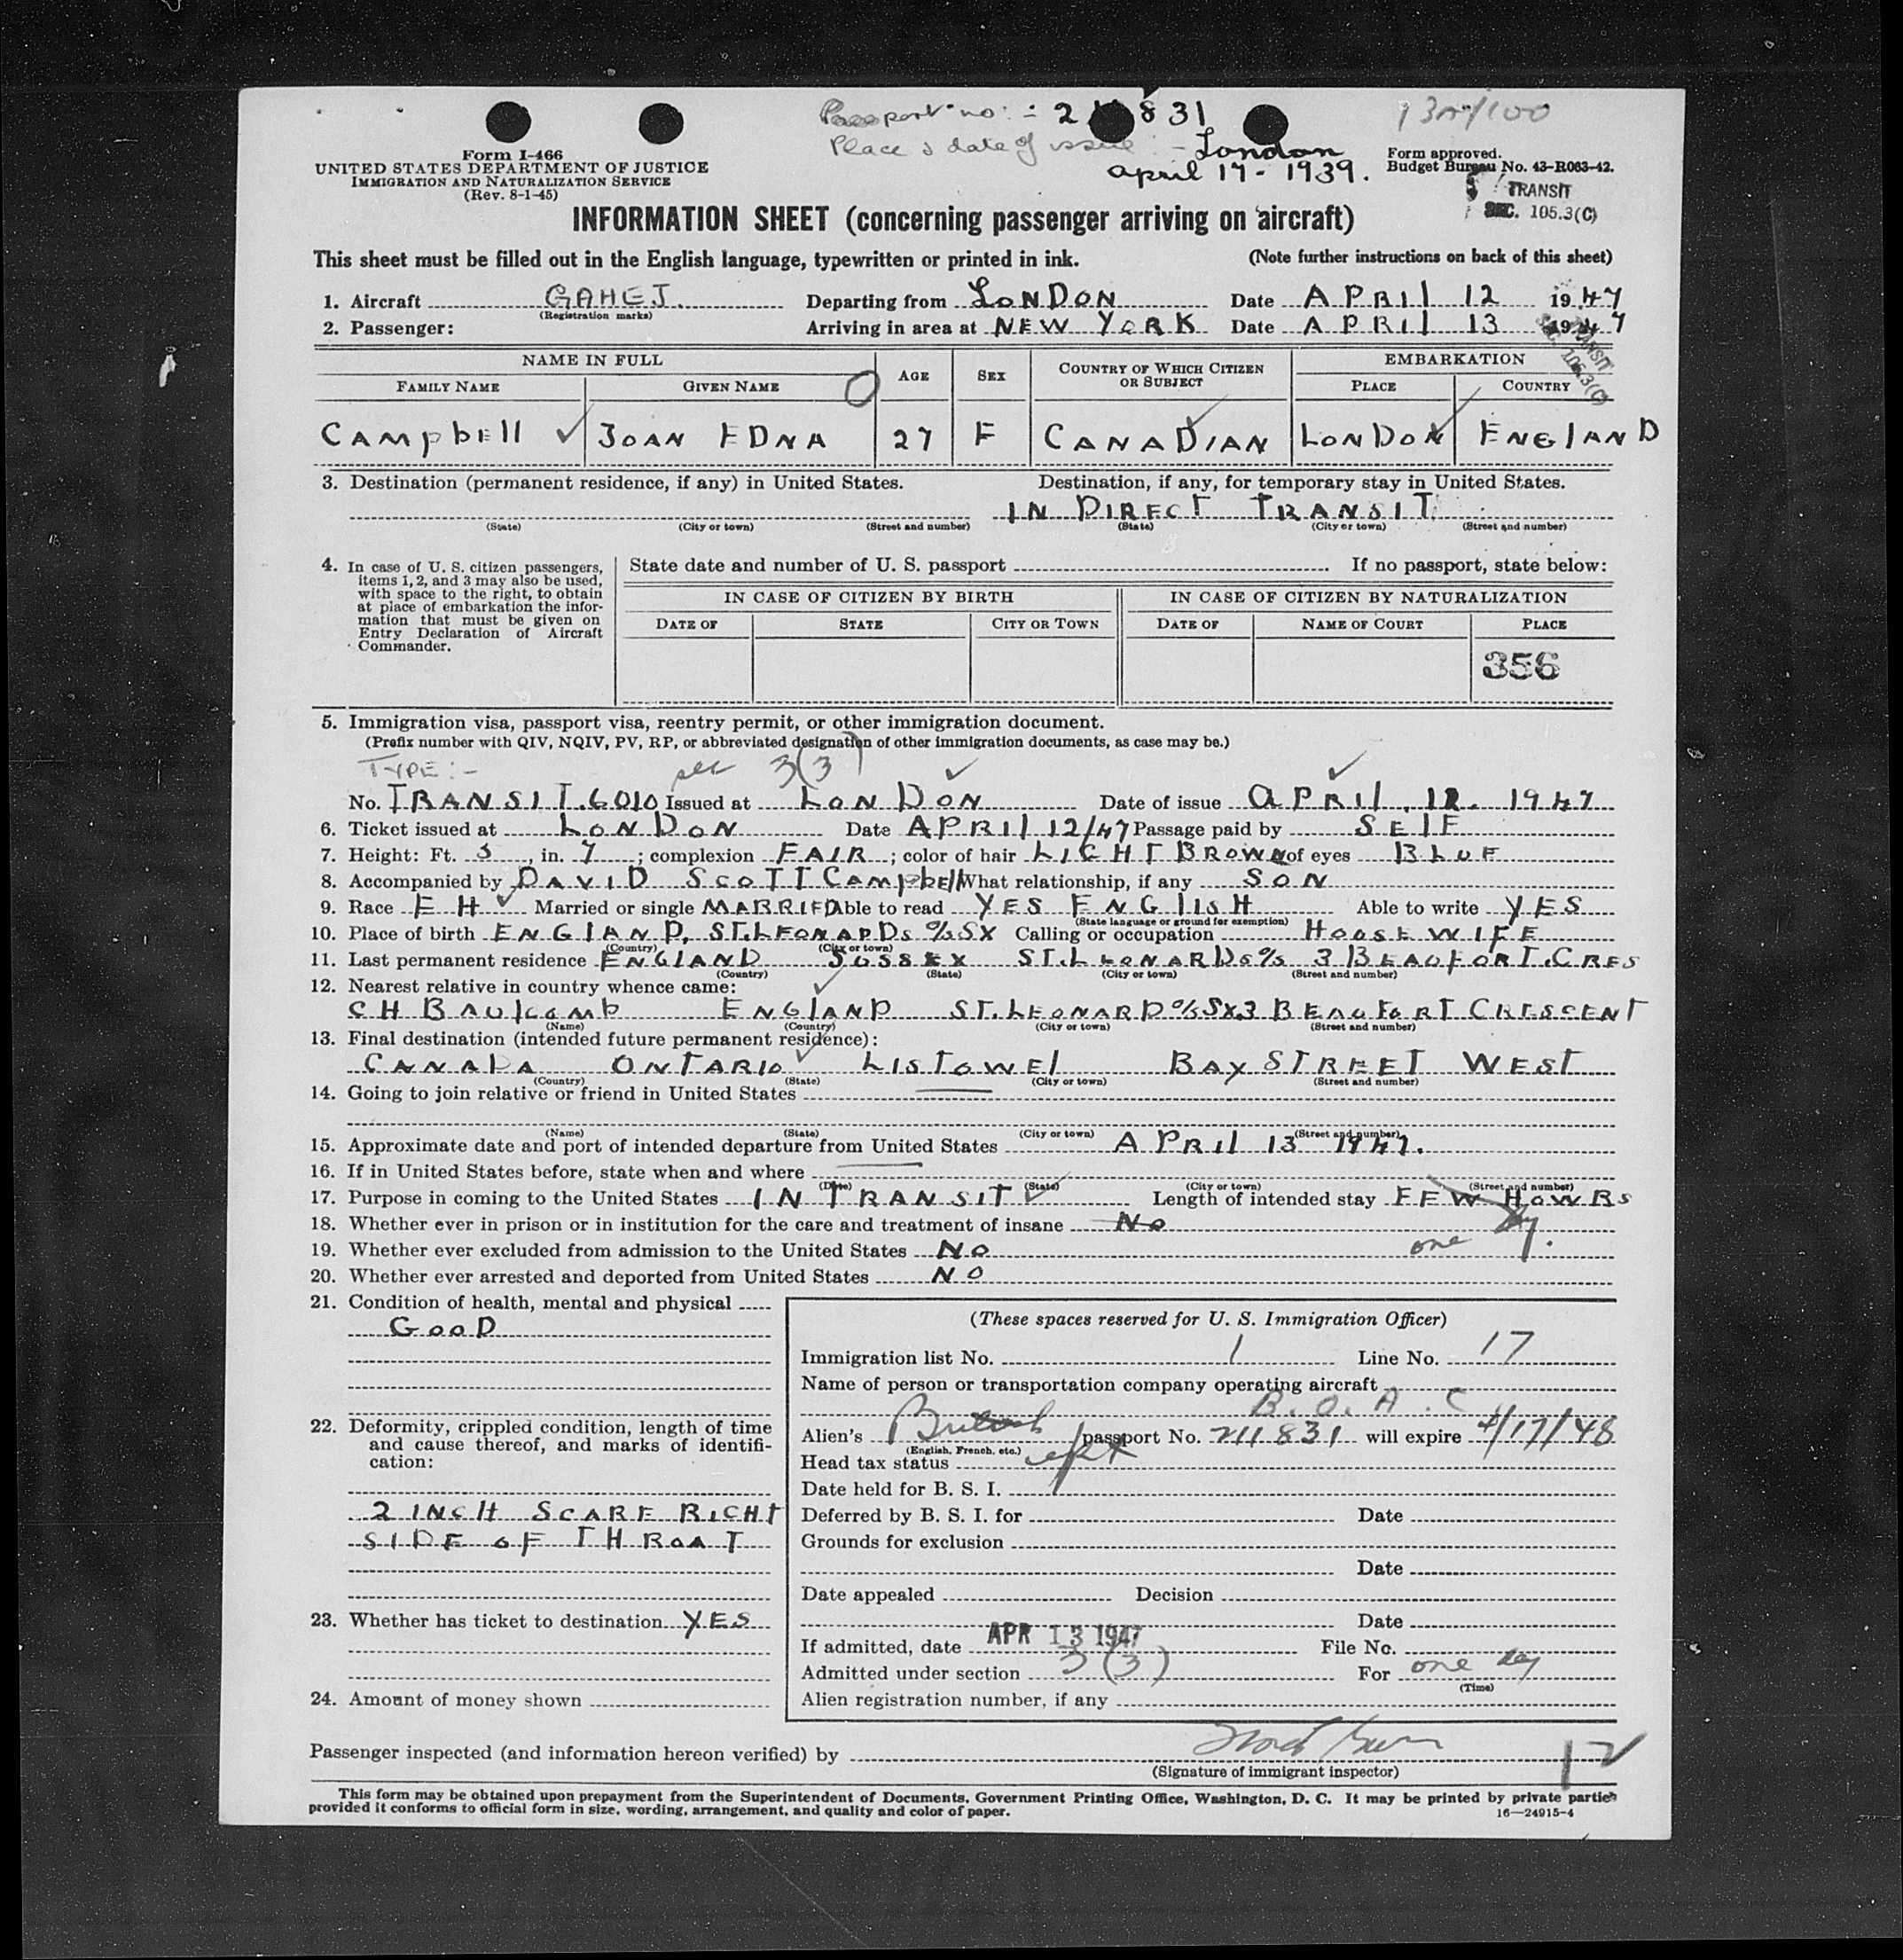 Passport no: - 2 831
Place & date of issue - London
April 17 - 1939.
Form I-466
UNITED STATES DEPARTMENT OF JUSTICE
IMMIGRATION AND NATURALIZATION SERVICE
(Rev. 8-1-45)
Form approved.
Budget Bureau No. 43-R063-42.
TRANSIT
SEC. 105.3(C)
INFORMATION SHEET (concerning passenger arriving on aircraft)
This sheet must be filled out in the English language, typewritten or printed in ink. (Note further instructions on back of this sheet)
1. Aircraft GAHEJ. Departing from LONDON Date APRIl 12 1947
(Registration marks)
2. Passenger: Arriving in area at NEW YORK Date APRIl 13 1947
TRANSIT
SEC. 105.3(C)
NAME IN FULL AGE SEX COUNTRY OF WHICH CITIZEN OR SUBJECT EMBARKATION
FAMILY NAME GIVEN NAME PLACE COUNTRY
CAMpbEll JOAN EDNA 27 F CANADIAN LONDON ENGlAND
3. Destination (permanent residence, if any) in United States. Destination, if any, for temporary stay in United States.
IN DIRECT TRANSIT
(State) (City or town) (Street and number) (State) (City or town) (Street and number)
4. In case of U. S. citizen passengers,
items 1, 2, and 3 may also be used,
with space to the right, to obtain
at place of embarkation the infor-
mation that must be given on
Entry Declaration of Aircraft
Commander.
State date and number of U. S. passport If no passport, state below:
IN CASE OF CITIZEN BY BIRTH IN CASE OF CITIZEN BY NATURALIZATION
DATE OF STATE CITY OR TOWN DATE OF NAME OF COURT PLACE
356
5. Immigration visa, passport visa, reentry permit, or other immigration document.
(Prefix number with QIV, NQIV, PV, RP, or abbreviated designation of other immigration documents, as case may be.)
TYPE:- sec 3(3)
No. TRANSIT.6010 Issued at LONDON Date of issue APRIl 12. 1947
6. Ticket issued at LONDON Date APRIl 12/47 Passage paid by SElF
7. Height: Ft. 5, in. 7; complexion FAIR; color of hair LIGHT BROWN of eyes BLUE
8. Accompanied by DAVID SCOTT CAMpbEll What relationship, if any SON
9. Race EH Married or single MARRIED Able to read YES ENGlISH Able to write YES
(State language or ground for exemption)
10. Place of birth ENGlAND, ST.LEONARDs o/s SX Calling or occupation HOUSEWIFE
(Country) (City or town)
11. Last permanent residence ENGLAND SUSSEX ST.LEONARDs o/s 3 BEAUFORT.CRES
(Country) (State) (City or town) (Street and number)
12. Nearest relative in country whence came:
CH BAUlcomb ENGlAND ST.LEONARD o/s SX.3 BEAUFORT CRESCENT
(Name) (Country) (City or town) (Street and number)
13. Final destination (intended future permanent residence):
CANADA ONTARIO LISTOWEl BAY STREET WEST
(Country) (State) (City or town) (Street and number)
14. Going to join relative or friend in United States
(Name) (State) (City or town) (Street and number)
15. Approximate date and port of intended departure from United States APRIl 13 1947.
16. If in United States before, state when and where
(Date) (State) (City or town) (Street and number)
17. Purpose in coming to the United States IN TRANSIT Length of intended stay FEW HOWRS
18. Whether ever in prison or in institution for the care and treatment of insane No
one day.
19. Whether ever excluded from admission to the United States No
20. Whether ever arrested and deported from United States NO
21. Condition of health, mental and physical
GooD
22. Deformity, crippled condition, length of time
and cause thereof, and marks of identifi-
cation:
2 INCH SCARE RIGHT
SIDE OF THROAT
23. Whether has ticket to destination YES
24. Amount of money shown
(These spaces reserved for U. S. Immigration Officer)
Immigration list No. 1 Line No. 17
Name of person or transportation company operating aircraft
B. O. A. C
Alien's British passport No. 211831 will expire 4/17/48
(English, French, etc.)
Head tax status ept
Date held for B. S. I.
Deferred by B. S. I. for Date
Grounds for exclusion
Date
Date appealed Decision
Date
If admitted, date APR 13 1947 File No.
Admitted under section 3(3) For one day
(Time)
Alien registration number, if any
Passenger inspected (and information hereon verified) by
(Signature of immigrant inspector)
This form may be obtained upon prepayment from the Superintendent of Documents, Government Printing Office, Washington, D. C. It may be printed by private parties
provided it conforms to official form in size, wording, arrangement, and quality and color of paper. 16—24915-4